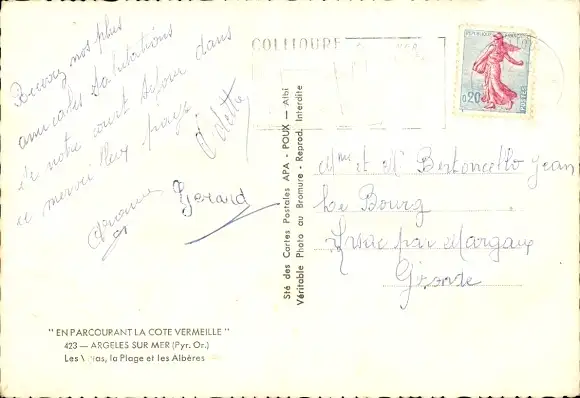 Recevez nos plus
amicales salutations
de notre court séjour dans
ce merveilleux pays
Odette
Gérard
COLLIOURE
REPUBLIQUE FRANÇAISE
0,20
POSTES
Mme et Mr Bertoncello Jean
Le Bourg
Arsac par Margaux
Gironde
Sté des Cartes Postales APA - POUX — Albi
Véritable Photo au Bromure - Reprod. Interdite
" EN PARCOURANT LA COTE VERMEILLE "
423 — ARGELES SUR MER (Pyr. Or.)
Les as, la Plage et les Albères